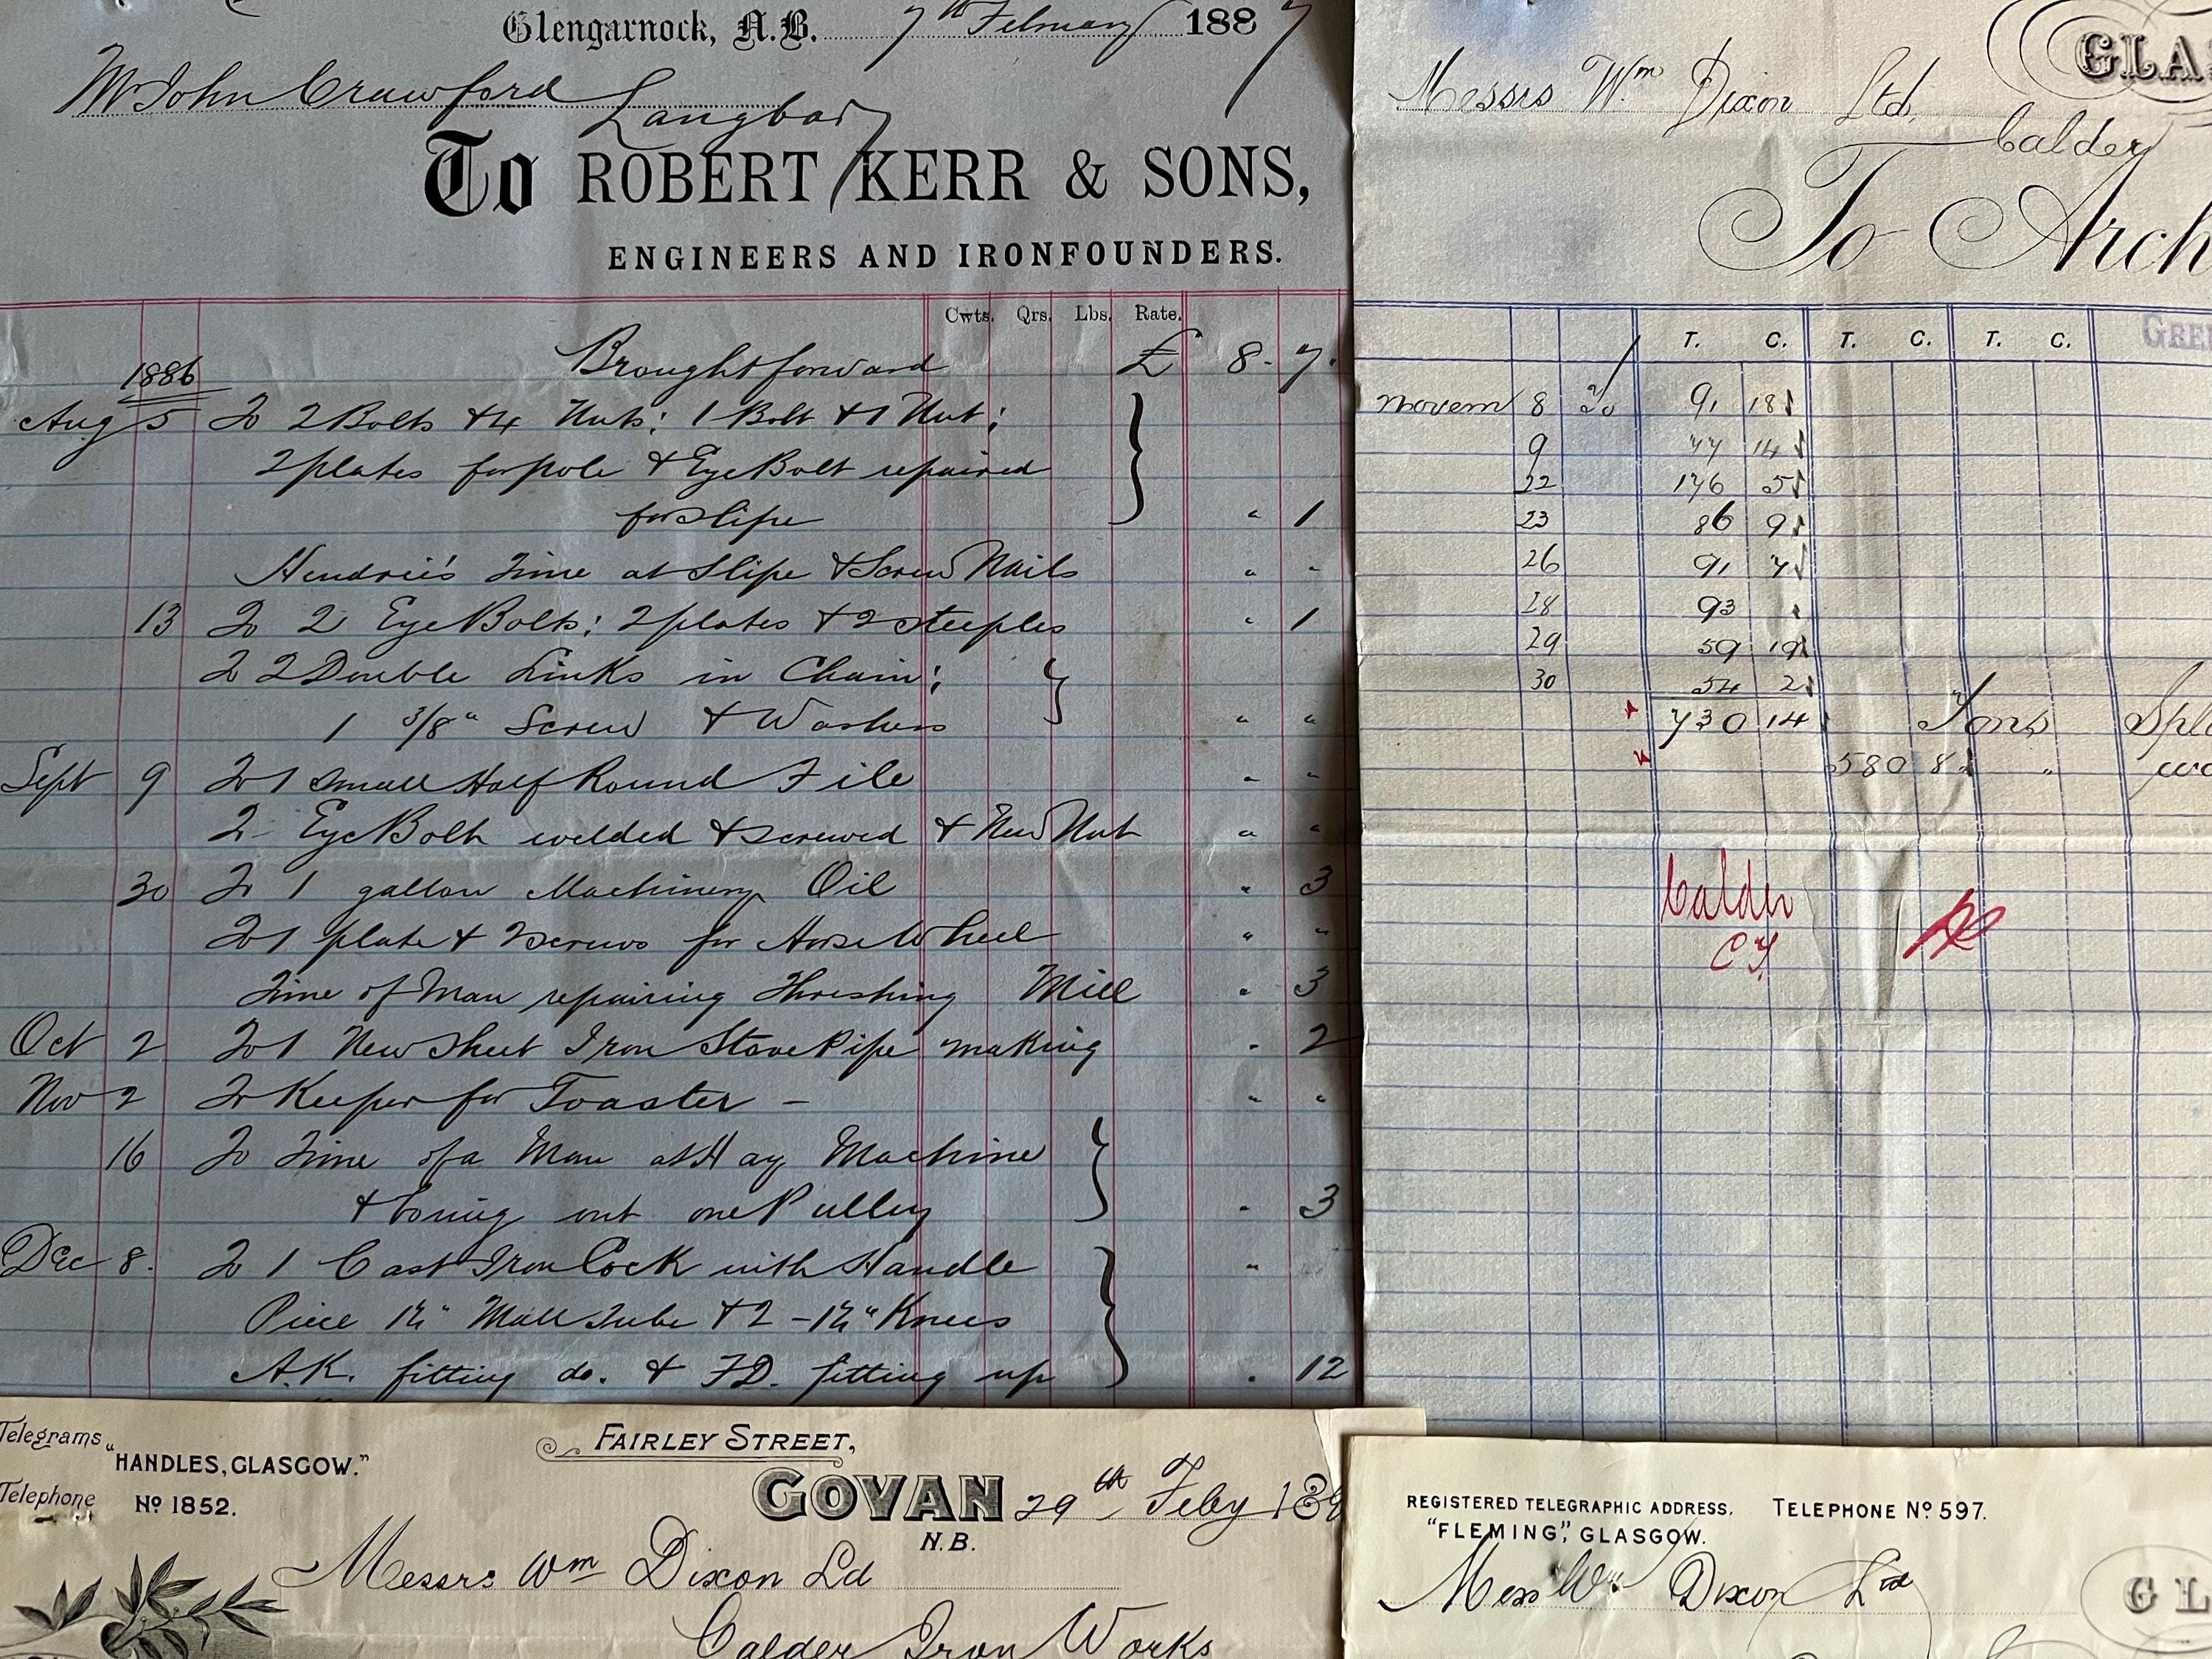 Glengarnock, N.B. 7th February 1887
Mr John Crawford
Langbar
To ROBERT KERR & SONS,
ENGINEERS AND IRONFOUNDERS.
Cwts. Qrs. Lbs. Rate.
1886 Brought forward £ 8 - 7
Aug 5 To 2 Bolts & 4 Nuts; 1 Bolt & 1 Nut;
2 plates for pole & Eye Bolt repaired
for Slipe " 1
Hendrie's Time at Slipe & Screw Nails " "
13 To 2 Eye Bolts; 2 plates & 2 Steeples " 1
2 Double Links in Chain;
1 3/8" Screw & Washers " "
Sept 9 To 1 Small Half Round File " "
Eye Bolt welded & screwed & New Nut " "
30 To 1 gallon Machinery Oil " 3
To 1 plate & 2 screws for Horse Wheel " "
Time of Man repairing Threshing Mill " 3
Oct 2 To 1 New Sheet Iron Stove Pipe making " 2
Nov 2 To Keeper for Toaster - " "
16 To Time of a Man at Hay Machine
& boring out one Pulley " 3
Dec 8. To 1 Cast Iron Cock with Handle "
Piece 1½" Mall Tube & 2 - 1½" Knees
A.K. fitting do. & F.D. fitting up " 12
GLA
Messrs Wm Dixon Ltd,
Calder
To Arch
T. C. T. C. T. C. GREE
Novem 8 91 18
9 77 14
22 176 5
23 86 9
26 91 7
28 93 "
29 59 19
30 54 2
730 14 Tons Spl
580 8 "
Calder
CY
Telegrams
"HANDLES, GLASGOW."
Telephone
No 1852.
FAIRLEY STREET,
GOVAN 29th Feby 189
N.B.
Messrs Wm Dixon Ld
Calder Iron Works
REGISTERED TELEGRAPHIC ADDRESS, TELEPHONE No 597.
"FLEMING", GLASGOW.
Mess Wm Dixon Ltd
GL